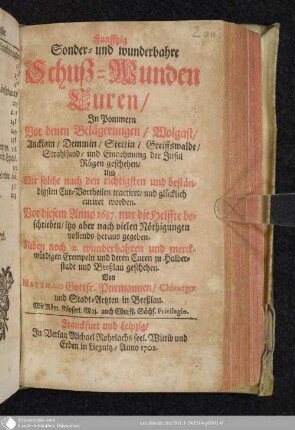 Funffzig
Sonder- und wunderbahre
Schuß-Wunden
Curen/
In Pommern
Vor denen Belägerungen/ Wolgast/
Ancklam/ Demmin/ Stettin/ Greiffswalde/
Strahlsund/ und Einnehmung der Insul
Rügen geschehen/
Und
Wie solche nach den richtigsten und bestän-
digsten Cur-Vortheilen tractiret/ und glücklich
curiret worden.
Vor diesem Anno 1687. nur die Helffte be-
schrieben/ itzo aber nach vielen Nöthigungen
vollends heraus gegeben.
Nebst noch 2. wunderbahren und merck-
würdigen Exempeln und deren Curen zu Halber-
stadt und Breßlau geschehen.
Von
MATTHÆO Gottfr. Purmannen/ Chirurgo
und Stadt-Artzten in Breßlau.
Mit Röm. Käyserl. Maj. auch Churfl. Sächs. Privilegio.
Franckfurt und Leipzig/
In Verlag Michael Rohrlachs seel. Wittib und
Erben in Liegnitz/ Anno 1702.